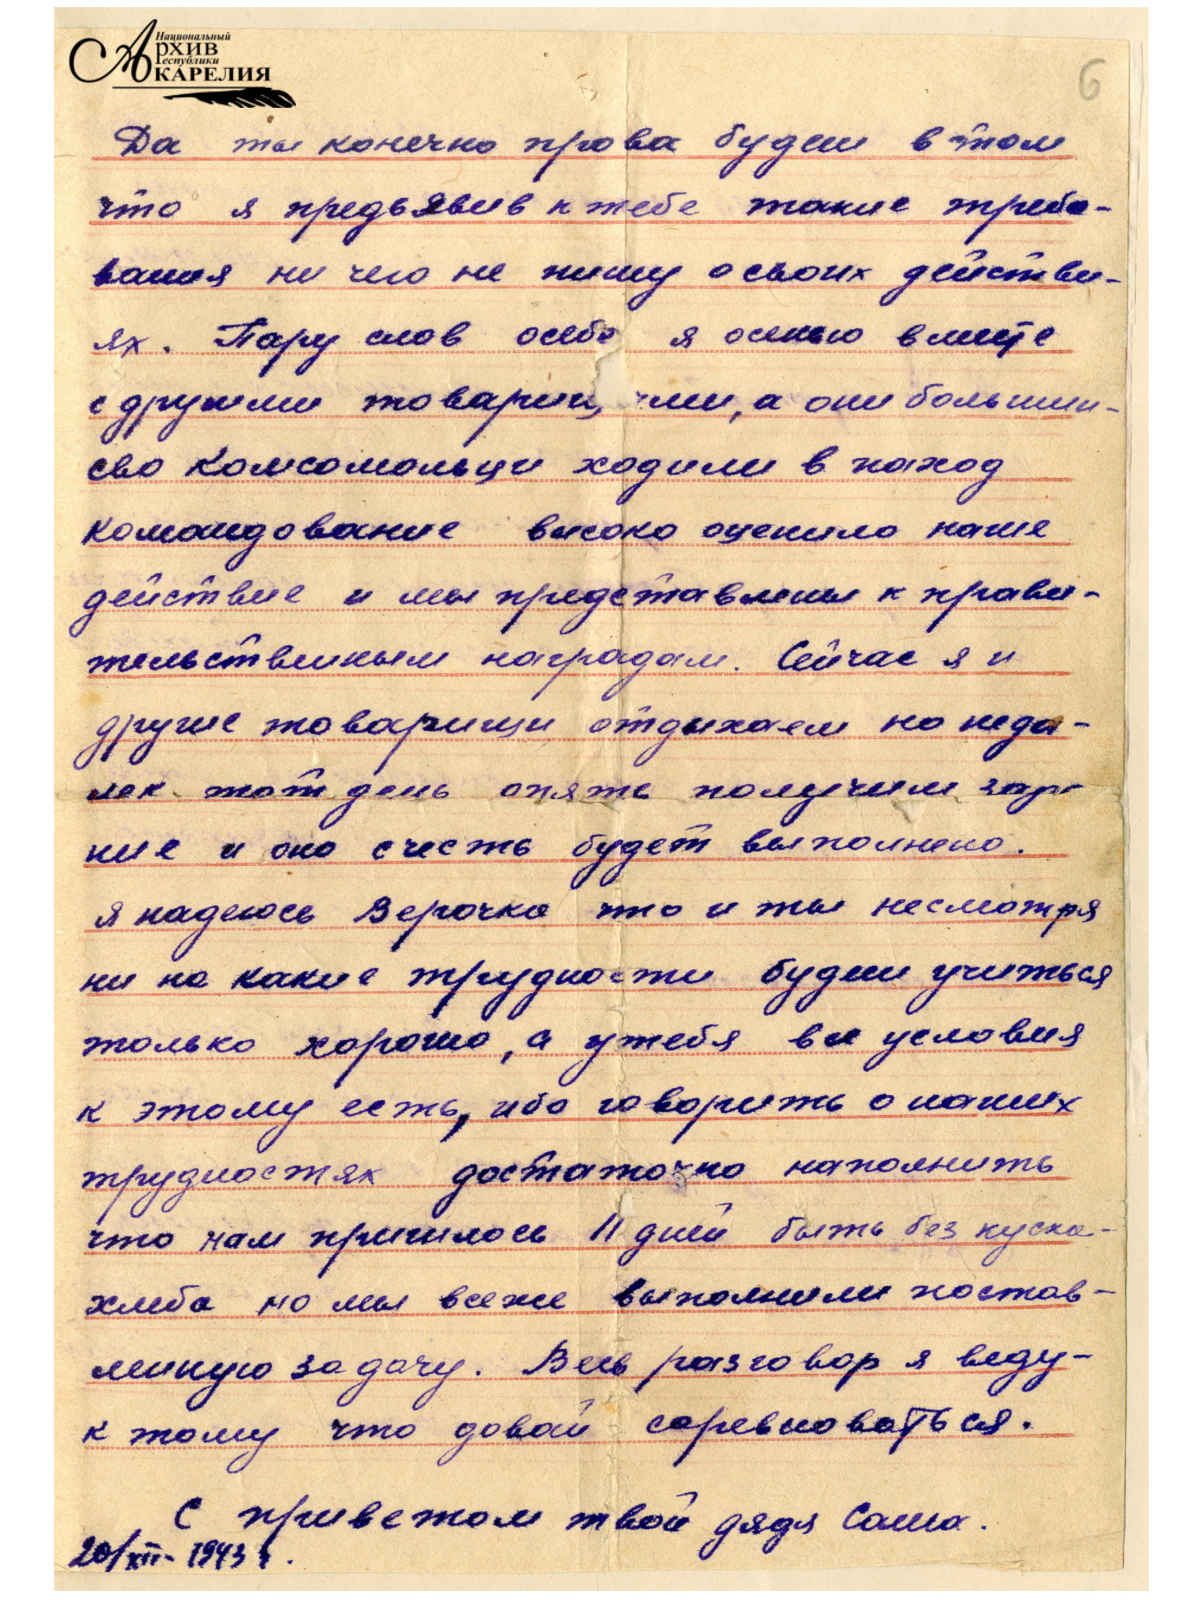 Национальный
Архив
Республики
Карелия
6
Да ты конечно права будеш в том
что я предъявив к тебе такие требо-
вания ни чего не пишу о своих действи-
ях. Пару слов о себе я осенью вместе
с другими товарищами, а они большин-
сво комсомольци ходили в поход
командование высоко оценило наше
действие и мы представлены к прави-
тельственным наградам. Сейчас я и
другие товарищи отдыхаем но неда-
лек тот день опять получим зада-
ние и оно с честь будет выполнено.
я надеюсь Верочка что и ты несмотря
ни на какие трудности будеш учиться
только хорошо, а у тебя все условия
к этому есть, ибо говорить о наших
трудностях достаточно напомнить
что нам пришлось 11 дней быть без куска-
хлеба но мы всеже выполнили постав-
леную задачу. Весь разговор я веду-
к тому что довай соревноваться.
С приветом твой дядя Саша.
20/XII- 1943 г.